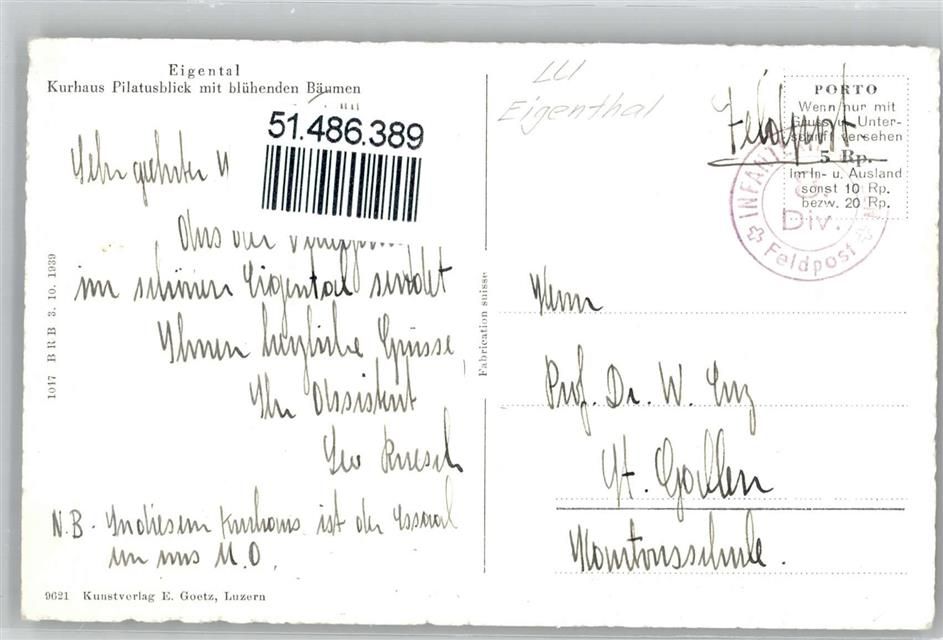 Eigental
Kurhaus Pilatusblick mit blühenden Bäumen
51.486.389
Sehr geehrter
Aus der
im schönen Eigental sendet
Ihnen herzliche Grüsse
Ihr Assistent
Geo
N.B. In diesem Kurhaus ist der Essaal
M.O.
9621 Kunstverlag E. Goetz, Luzern
1017 BRB 3. 10. 1939
Fabrication suisse
LU
Eigenthal
Feldpost
PORTO
Wenn nur mit
Gruss u. Unter-
schrift versehen
5 Rp.
Im In- u. Ausland
sonst 10 Rp.
bezw. 20 Rp.
Div.
Feldpost
Herrn
Prof. Dr. W. Enz
St. Gallen
Kantonsschule.